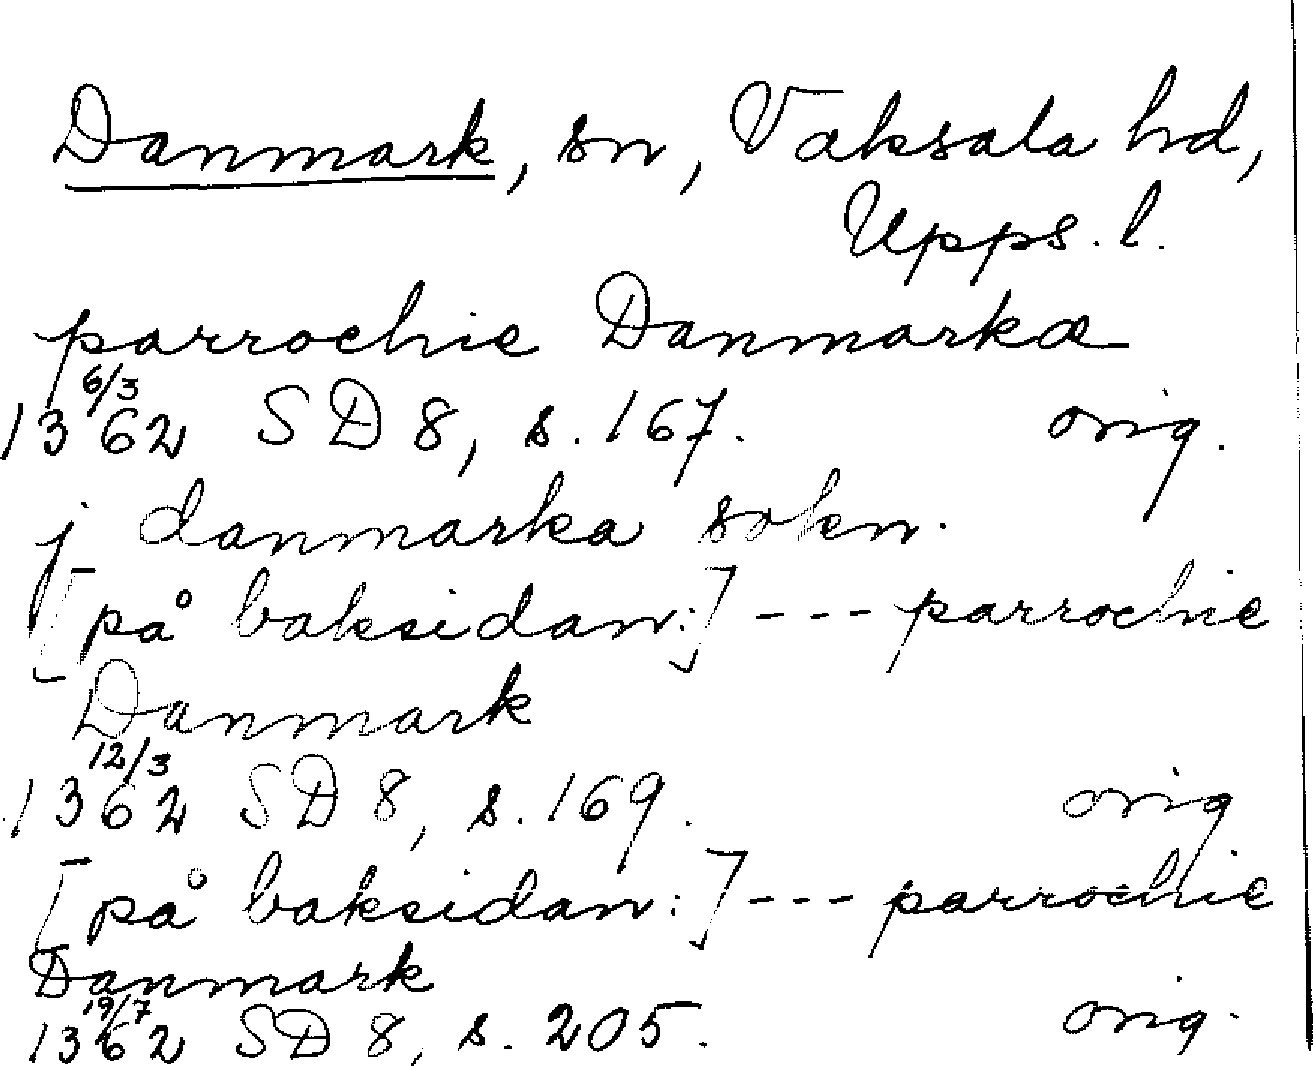 Danmark, sn, Vaksala hd,
Upps. l.
parrochie Danmarkæ
13 6/3 62 SD 8, s. 167. orig.
j danmarka sokn.
[på baksidan:] --- parrochie
Danmark
13 12/3 62 SD 8, s. 169. orig
[på baksidan:] --- parrochie
Danmark
13 19/7 62 SD 8, s. 205. orig.